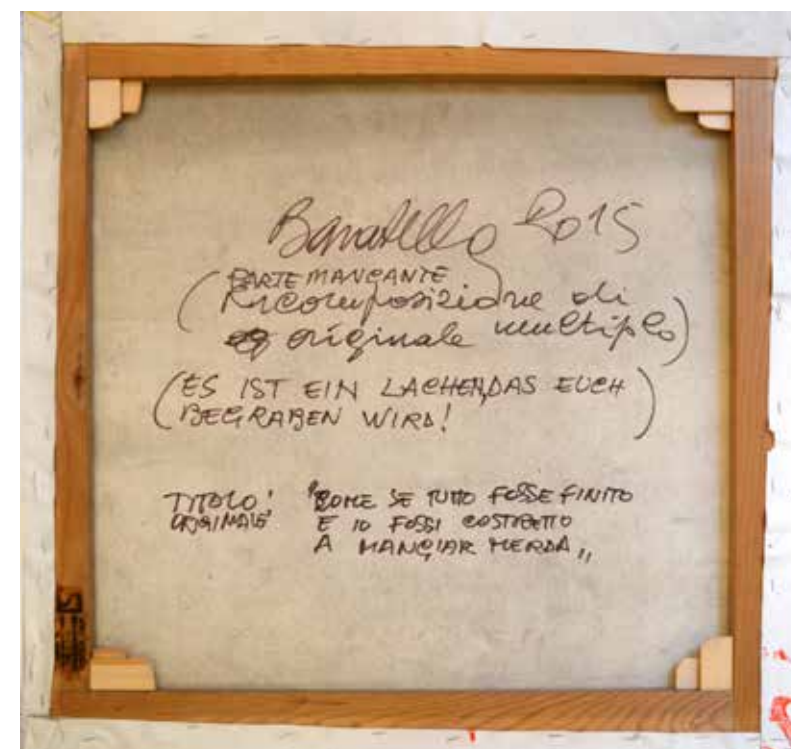 Baratella 2015
(PARTE MANCANTE
Ricomposizione di
originale multiplo)
(ES IST EIN LACHEN, DAS EUCH
BEGRABEN WIRD!)
TITOLO: "COME SE TUTTO FOSSE FINITO
ORIGINALE E IO FOSSI COSTRETTO
A MANGIAR MERDA"